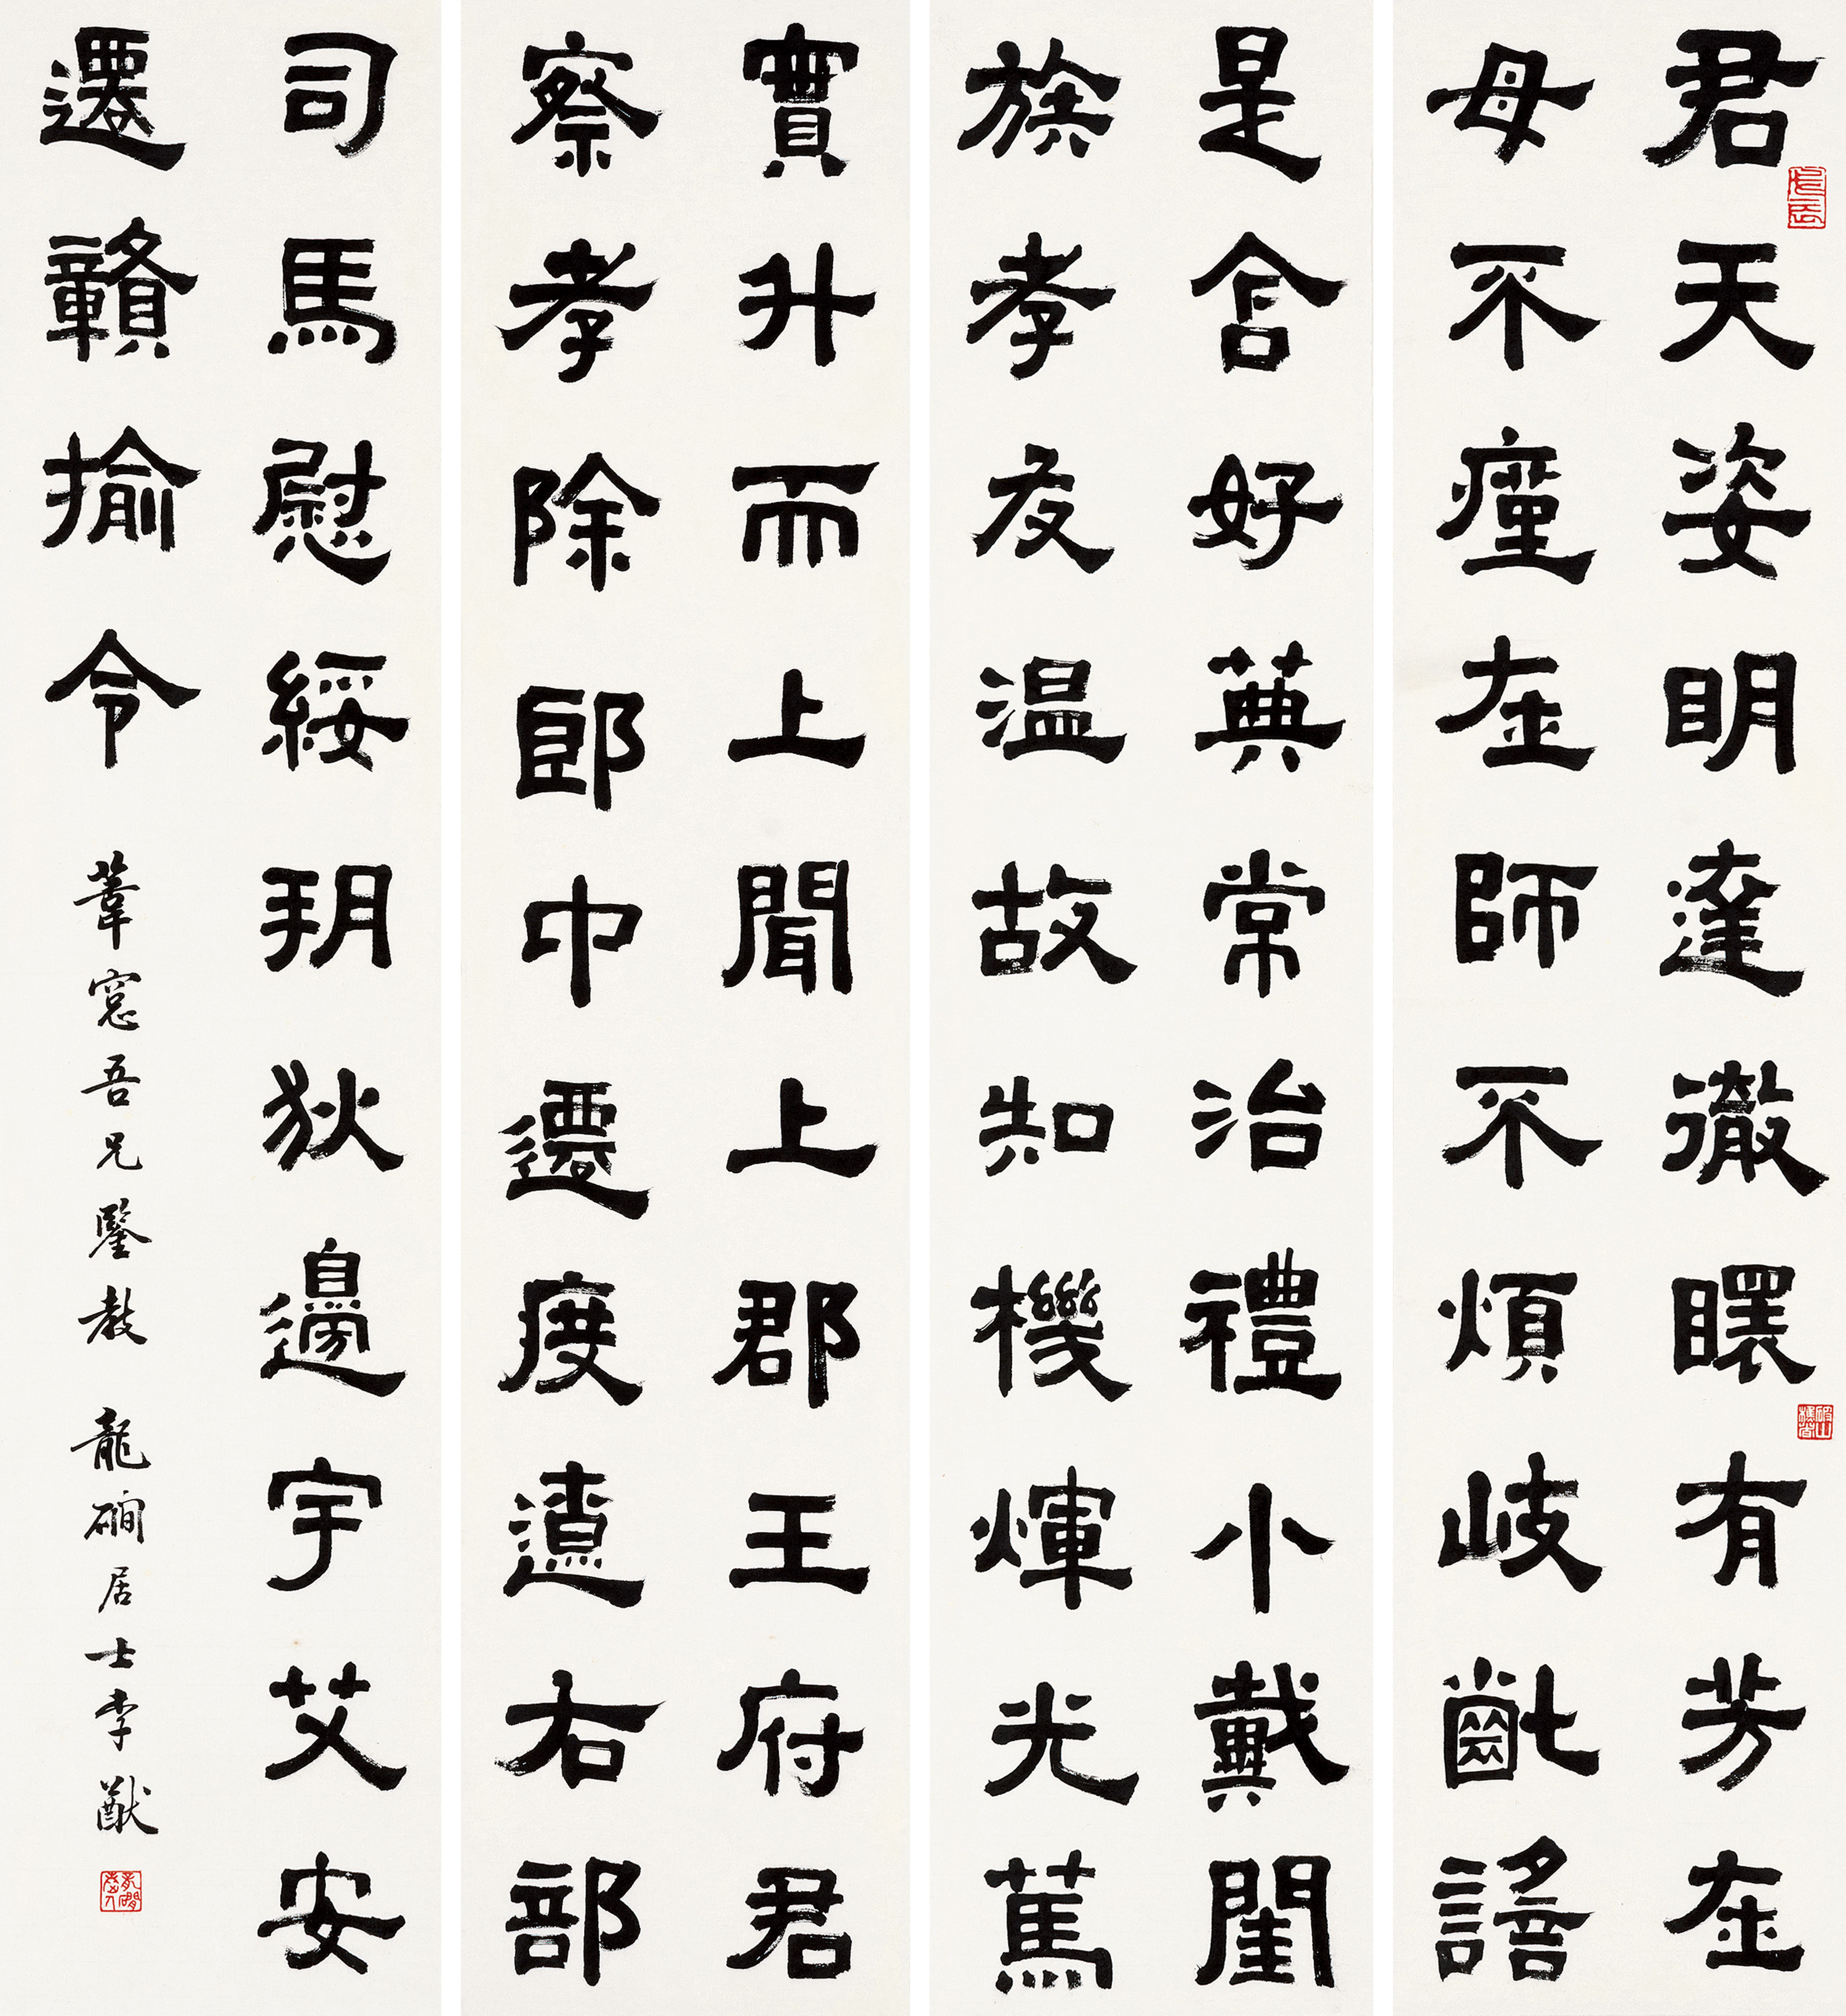 君天姿明達徹有芳在
母不瘇在師不煩岐齔謠
是含好典常治禮小戴閨
族孝友温故知機煇光篤
實升而上聞上郡王府君
察孝除郎中遷度遼右部
司馬慰綏朔狄邊宇艾安
遷贛揄令
葦窓吾兄鑒教 龍磵居士李猷